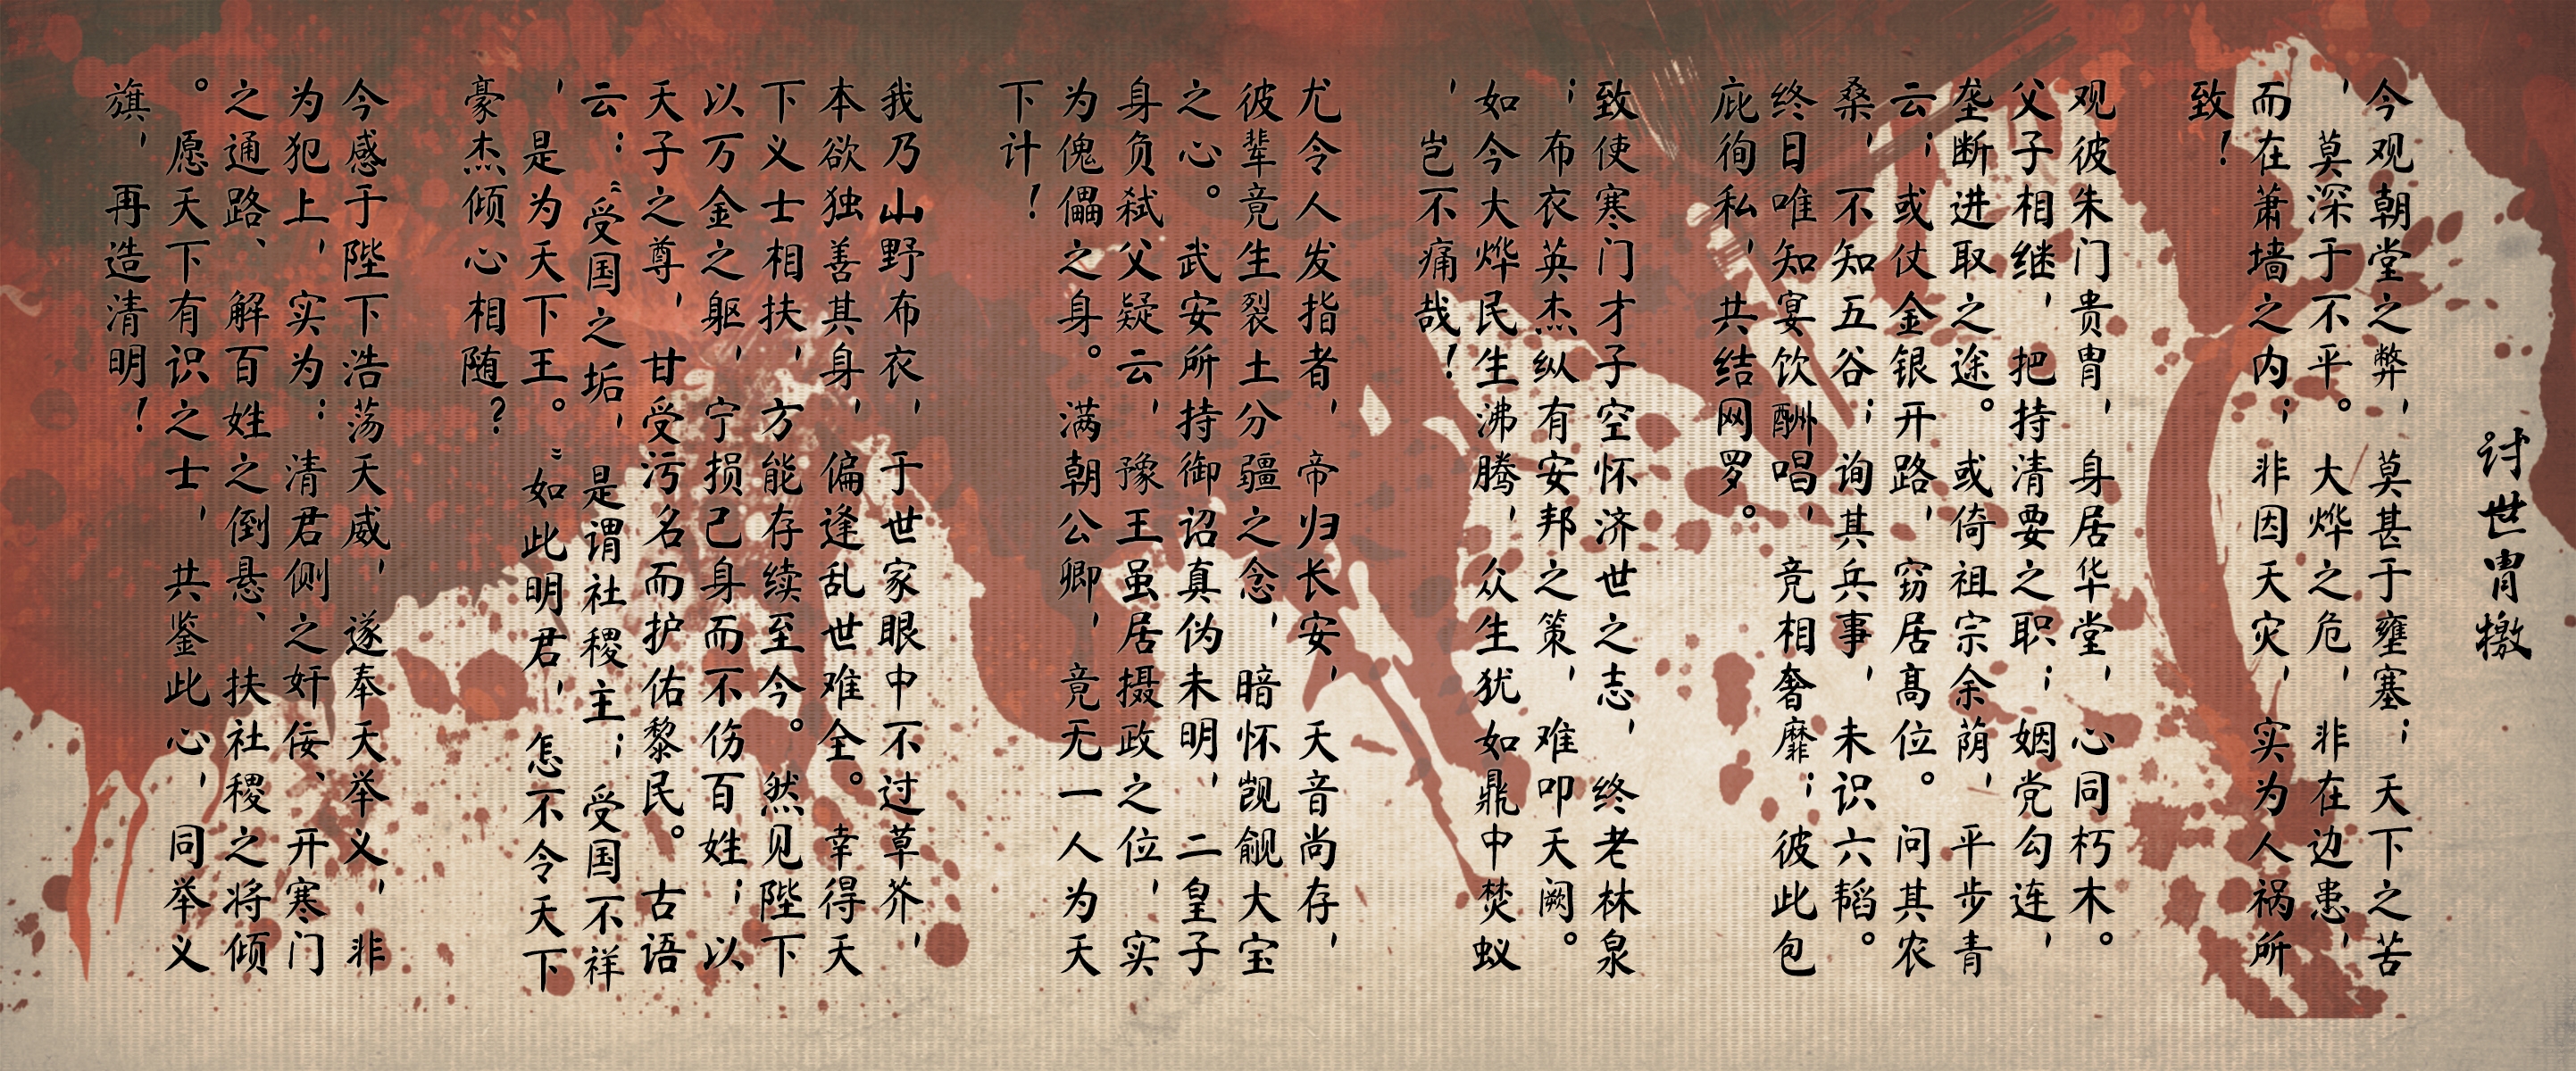 讨世胄檄
今观朝堂之弊，莫甚于壅塞；天下之苦
，莫深于不平。大烨之危，非在边患，
而在萧墙之内；非因天灾，实为人祸所
致！
观彼朱门贵胄，身居华堂，心同朽木。
父子相继，把持清要之职；姻党勾连，
垄断进取之途。或倚祖宗余荫，平步青
云；或仗金银开路，窃居高位。问其农
桑，不知五谷；询其兵事，未识六韬。
终日唯知宴饮酬唱，竞相奢靡；彼此包
庇徇私，共结网罗。
致使寒门才子空怀济世之志，终老林泉
；布衣英杰纵有安邦之策，难叩天阙。
如今大烨民生沸腾，众生犹如鼎中焚蚁
，岂不痛哉！
尤令人发指者，帝归长安，天音尚存，
彼辈竟生裂土分疆之念，暗怀觊觎大宝
之心。武安所持御诏真伪未明，二皇子
身负弑父疑云，豫王虽居摄政之位，实
为傀儡之身。满朝公卿，竟无一人为天
下计！
我乃山野布衣，于世家眼中不过草芥，
本欲独善其身，偏逢乱世难全。幸得天
下义士相扶，方能存续至今。然见陛下
以万金之躯，宁损己身而不伤百姓；以
天子之尊，甘受污名而护佑黎民。古语
云：“受国之垢，是谓社稷主；受国不祥
，是为天下王。”如此明君，怎不令天下
豪杰倾心相随？
今感于陛下浩荡天威，遂奉天举义，非
为犯上，实为：清君侧之奸佞、开寒门
之通路、解百姓之倒悬、扶社稷之将倾
。愿天下有识之士，共鉴此心，同举义
旗，再造清明！